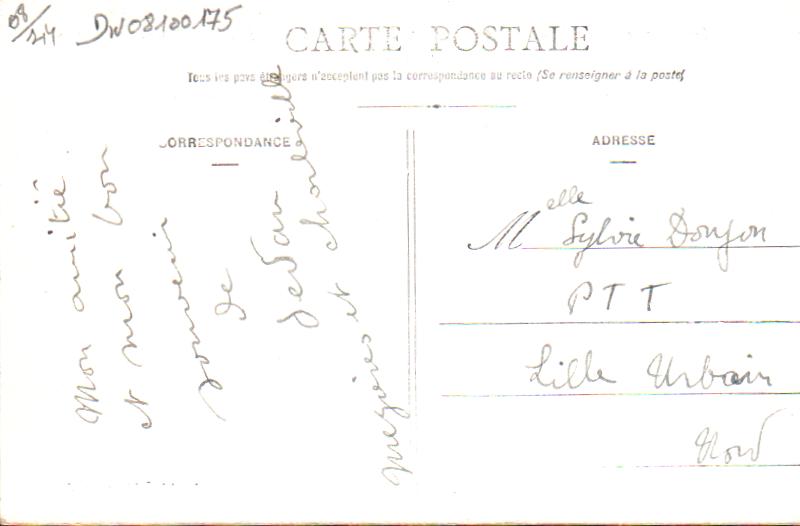 08/24 DW08100175
CARTE POSTALE
Tous les pays étrangers n'acceptent pas la correspondance au recto (Se renseigner à la poste)
CORRESPONDANCE
Mon amitié
et mon bon
souvenir
de
Sedan
Mézières et Charleville
ADRESSE
Melle Sylvie Donjon
PTT
Lille Urbain
Nord